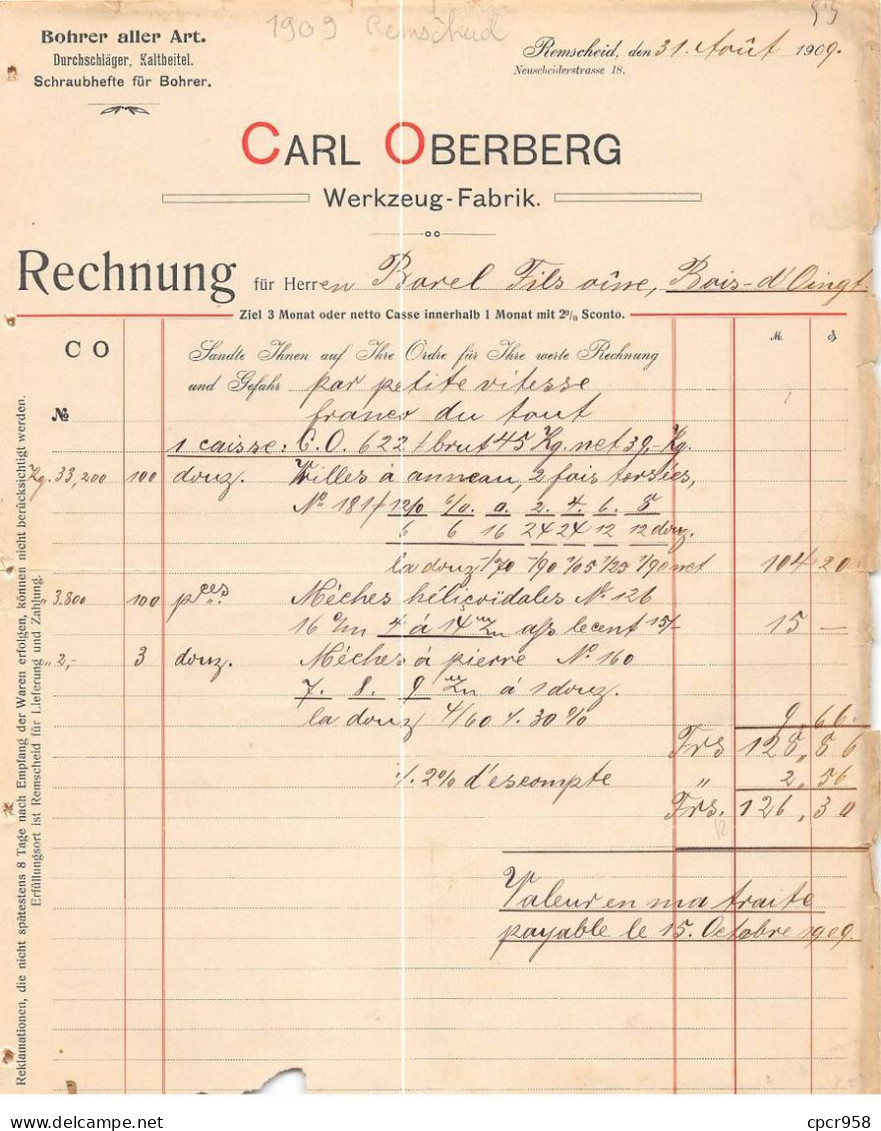 1909 Remscheid
Bohrer aller Art.
Durchschläger, Kaltbeitel.
Schraubhefte für Bohrer.
Remscheid, den 31. Août 1909.
Neuscheiderstrasse 18.
CARL OBERBERG
Werkzeug-Fabrik.
Rechnung für Herren Borel Fils aîné, Bois-d'Oingt.
Ziel 3 Monat oder netto Casse innerhalb 1 Monat mit 2% Sconto.
C O
Sandte Ihnen auf Ihre Ordre für Ihre werte Rechnung
und Gefahr par petite vitesse
franco du tout
№
1 caisse: C.O. 622 brut 45 Kg. net 39,- Kg.
Kg. 33,200 100 douz. Vrilles à anneau, 2 fois torsées,
No 181 12/0 6/0. 0. 2. 4. 6. 8
6 6 16 24 24 12 12 douz.
la douz -/70 -/90 1/05 1/25 1/90 net 104 20
" 3.800 100 pces Mèches héliçoïdales No. 126
16 c/m 4 à 14 m/m ass le cent 15/- 15 —
" 2,- 3 douz. Mèches à pierre No. 160
7. 8. 9 m/m à 1 douz.
la douz 4/60 ./. 30% 9,66
Frs 128,86
./. 2% d'escompte " 2,56
Frs. 126,30
Valeur en ma traite
payable le 15. Octobre 1909.
Reklamationen, die nicht spätestens 8 Tage nach Empfang der Waren erfolgen, können nicht berücksichtigt werden.
Erfüllungsort ist Remscheid für Lieferung und Zahlung.
Delcampe.net
cpcr958